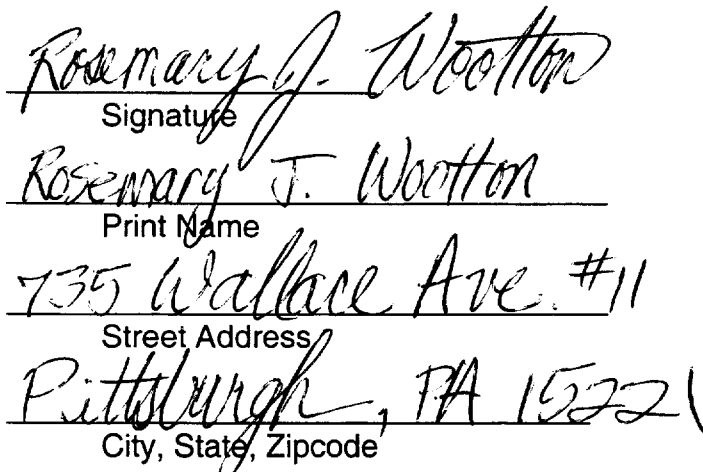 Rosemary J. Wootton
Signature
Rosemary J. Wootton
Print Name
735 Wallace Ave. #11
Street Address
Pittsburgh, PA 15221
City, State, Zipcode